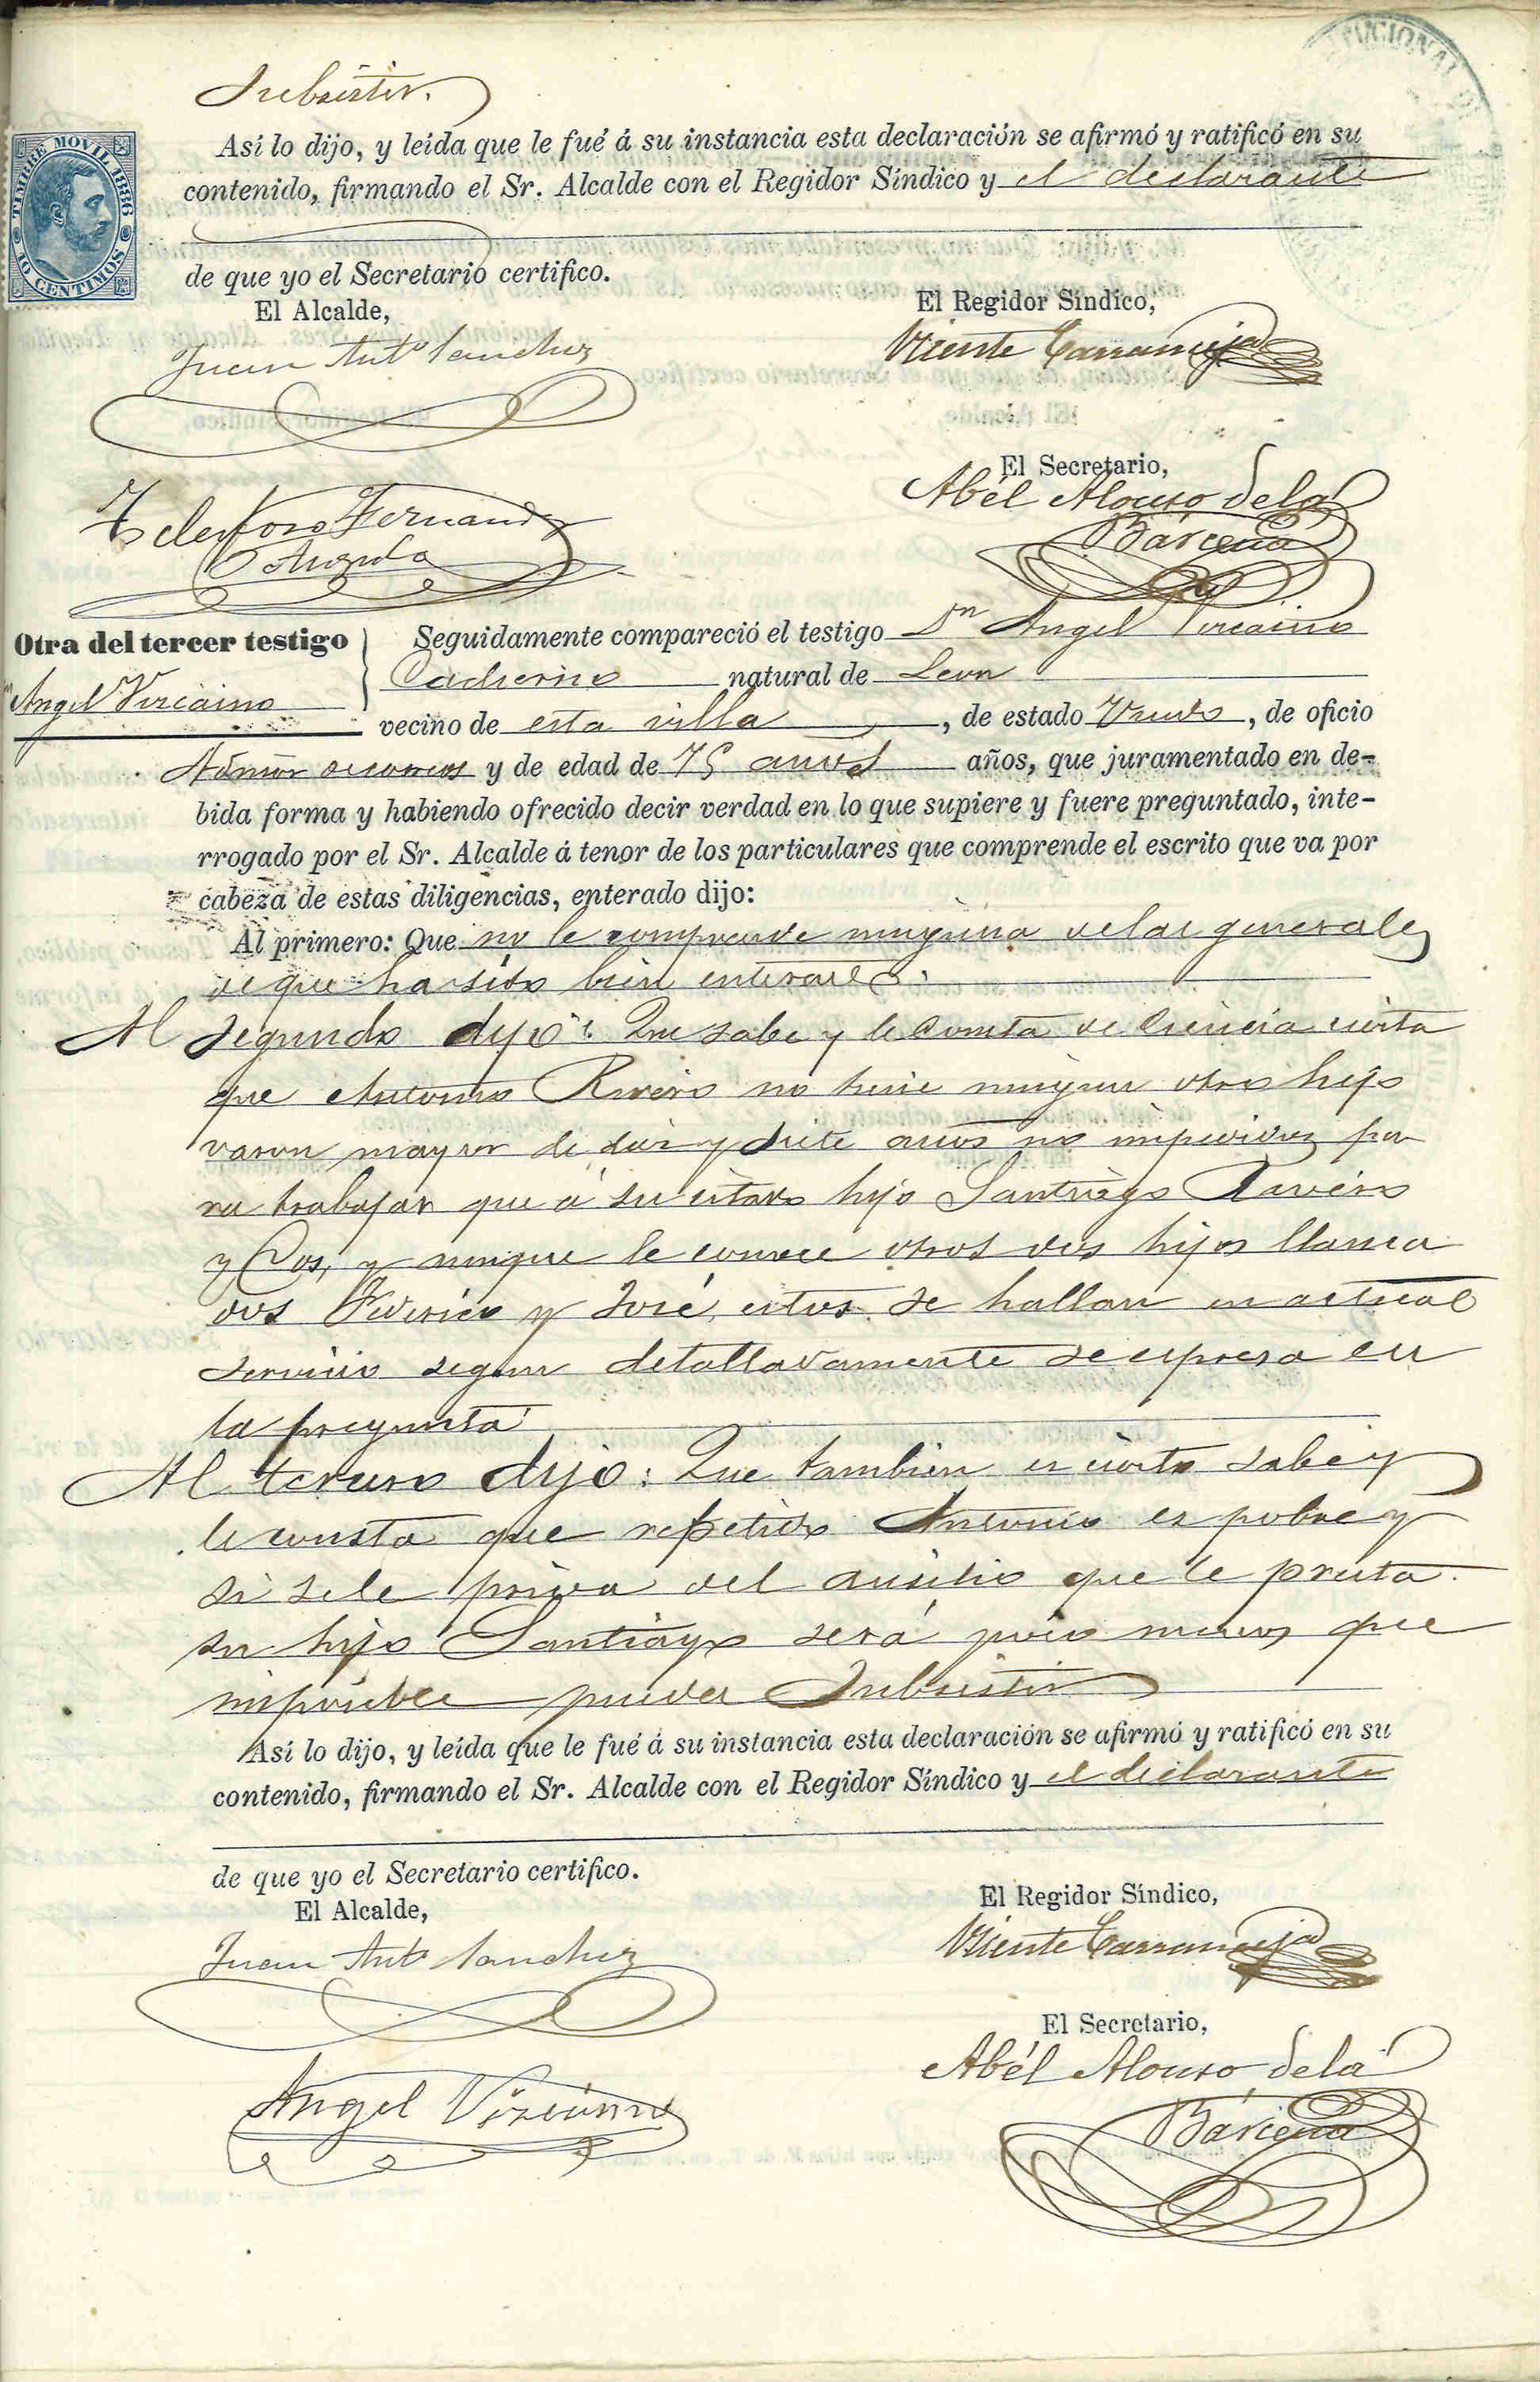 Subsistir.
TIMBRE MOVIL 1886
10 CENTIMOS
Así lo dijo, y leída que le fué á su instancia esta declaración se afirmó y ratificó en su
contenido, firmando el Sr. Alcalde con el Regidor Síndico y el declarante
de que yo el Secretario certifico.
El Alcalde,
El Regidor Síndico,
Juan Antº Sanchez
Vicente Carramija
El Secretario,
Abél Alonso de la
Bárcena
Telesforo Fernandez
Angulo
Otra del tercer testigo
Angel Vizcaino
Seguidamente compareció el testigo Dn Angel Vizcaino
natural de Leon
vecino de esta villa, de estado Viudo, de oficio
y de edad de 75 años años, que juramentado en de-
bida forma y habiendo ofrecido decir verdad en lo que supiere y fuere preguntado, inte-
rrogado por el Sr. Alcalde á tenor de los particulares que comprende el escrito que va por
cabeza de estas diligencias, enterado dijo:
Al primero: Que no le comprende ninguna de las generales
de que ha sido bien enterado.
Al Segundo dijo: Que sabe y le consta de Ciencia cierta
que Antonio Rivero no tiene ningun otro hijo
varon mayor de diez y siete años no impedidos pa
ra trabajar que á su citado hijo Santiago Rivero
y Cos, y aunque le conoce otros dos hijos llama
dos Federico y José, estos se hallan en actual
servicio segun detalladamente se espresa en
la pregunta
Al tercero dijo: Que tambien es cierto sabe y
le consta que repetido Antonio es pobre y
si se le priva del ausilio que le presta
su hijo Santiago será poco menos que
imposible pueda Subsistir
Así lo dijo, y leída que le fué á su instancia esta declaración se afirmó y ratificó en su
contenido, firmando el Sr. Alcalde con el Regidor Síndico y el declarante
de que yo el Secretario certifico.
El Alcalde,
El Regidor Síndico,
Juan Antº Sanchez
Vicente Carramija
El Secretario,
Abél Alonso de la
Bárcena
Angel Vizcaino